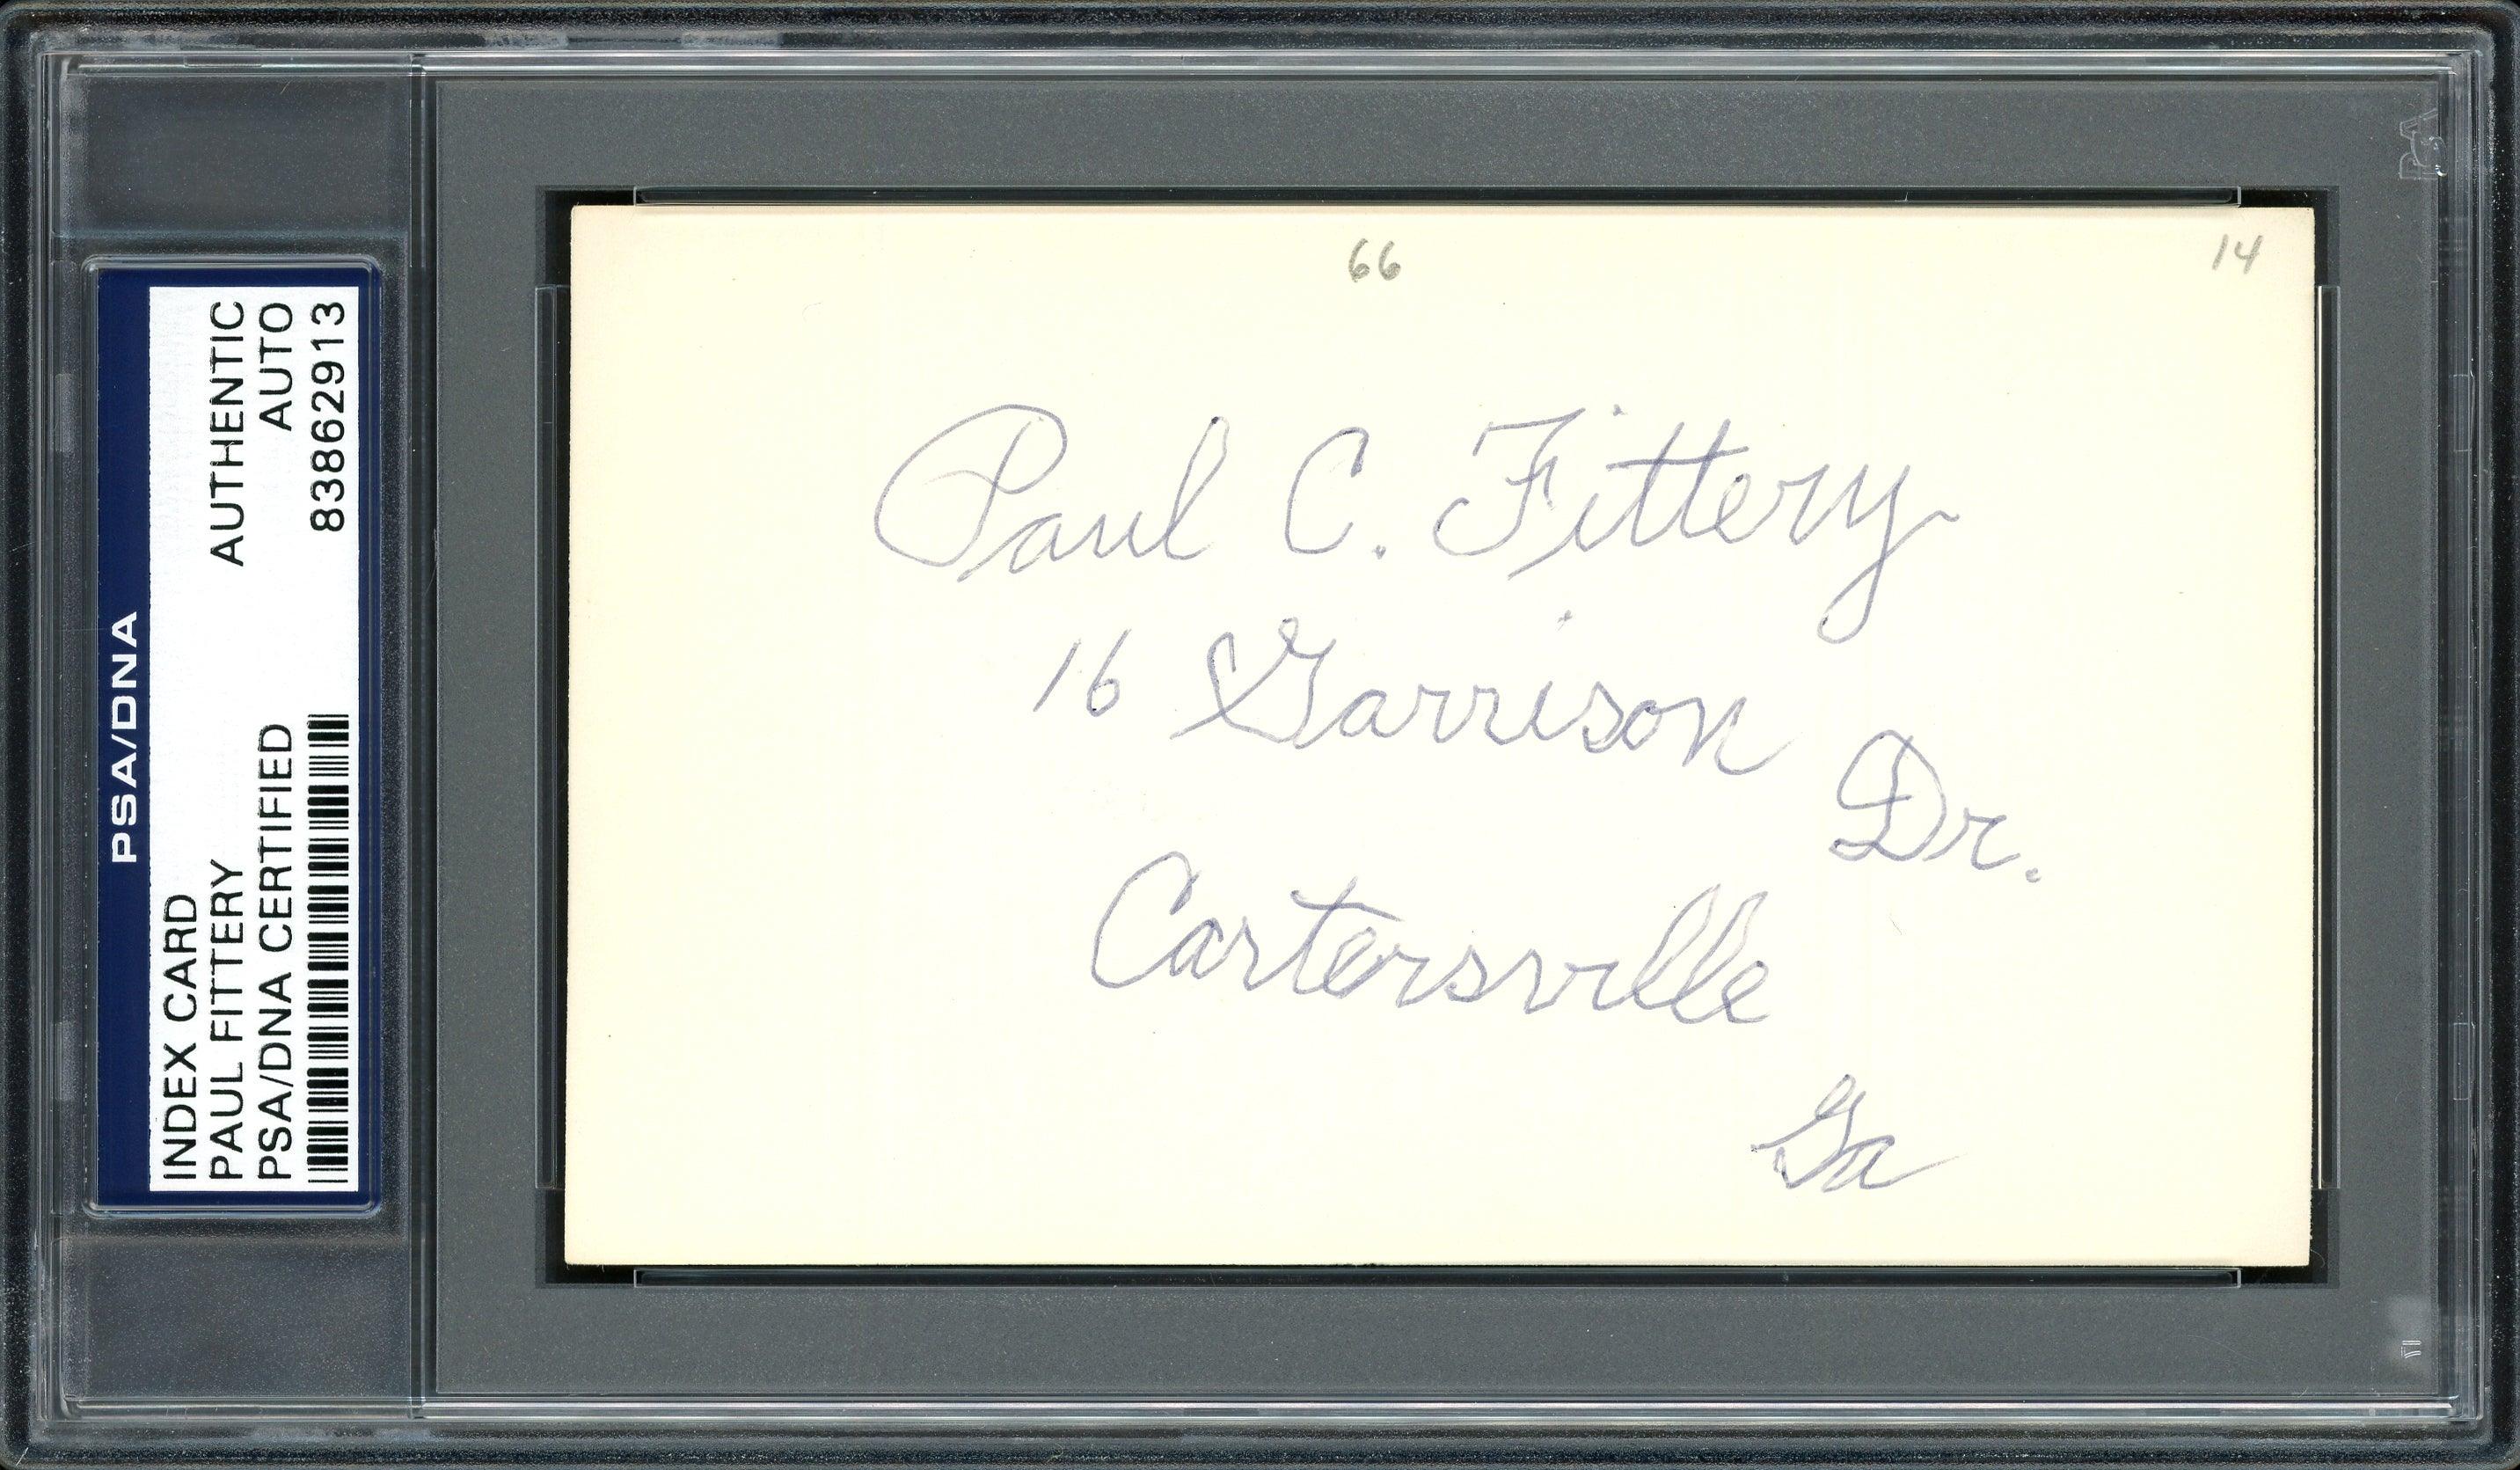 PSA/DNA
INDEX CARD
AUTHENTIC
PAUL FITTERY
AUTO
PSA/DNA CERTIFIED
83862913
66
14
Paul C. Fittery
16 Garrison Dr.
Cartersville
Ga
PSA